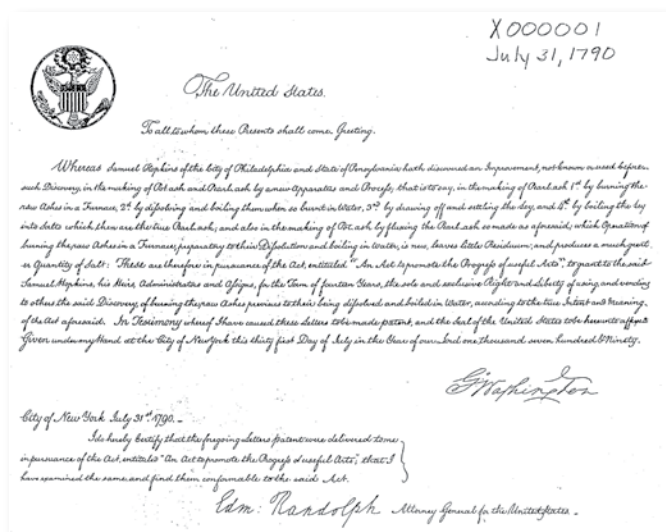 X000001
July 31, 1790
The United States.
To all to whom these Presents shall come, Greeting.
Whereas Samuel Hopkins of the City of Philadelphia and State of Pensylvania hath discovered an Improvement, not known or used before
such Discovery, in the making of Pot ash and Pearl ash by a new Apparatus and Process; that is to say, in the making of Pearl ash 1st by burning the
raw Ashes in a Furnace, 2d by dissolving and boiling them when so burnt in Water, 3rd by drawing off and settling the Ley, and 4th by boiling the Ley
into Salts which then are the true Pearl ash; and also in the making of Pot ash by fluxing the Pearl ash so made as aforesaid; which Operation of
burning the raw Ashes in a Furnace, preparatory to their Dissolution and boiling in Water, is new, leaves little Residuum; and produces a much great
er Quantity of Salt: These are therefore in pursuance of the Act, entituled "An Act to promote the Progress of useful Arts", to grant to the said
Samuel Hopkins, his Heirs, Administrators and Assigns, for the Term of fourteen Years, the sole and exclusive Right and Liberty of using, and vending
to others the said Discovery, of burning the raw Ashes previous to their being dissolved and boiled in Water, according to the true Intent and Meaning
of the Act aforesaid. In Testimony whereof I have caused these Letters to be made patent, and the Seal of the United States to be hereunto affixed
Given under my Hand at the City of New York this thirty first Day of July in the Year of our Lord one thousand seven hundred & Ninety.
G Washington
City of New York July 31st 1790. –
I do hereby Certify that the foregoing Letters patent were delivered to me
in pursuance of the Act, entituled "An Act to promote the Progress of useful Arts"; that I
have examined the same and find them conformable to the said Act.
Edm: Randolph Attorney General for the United States.